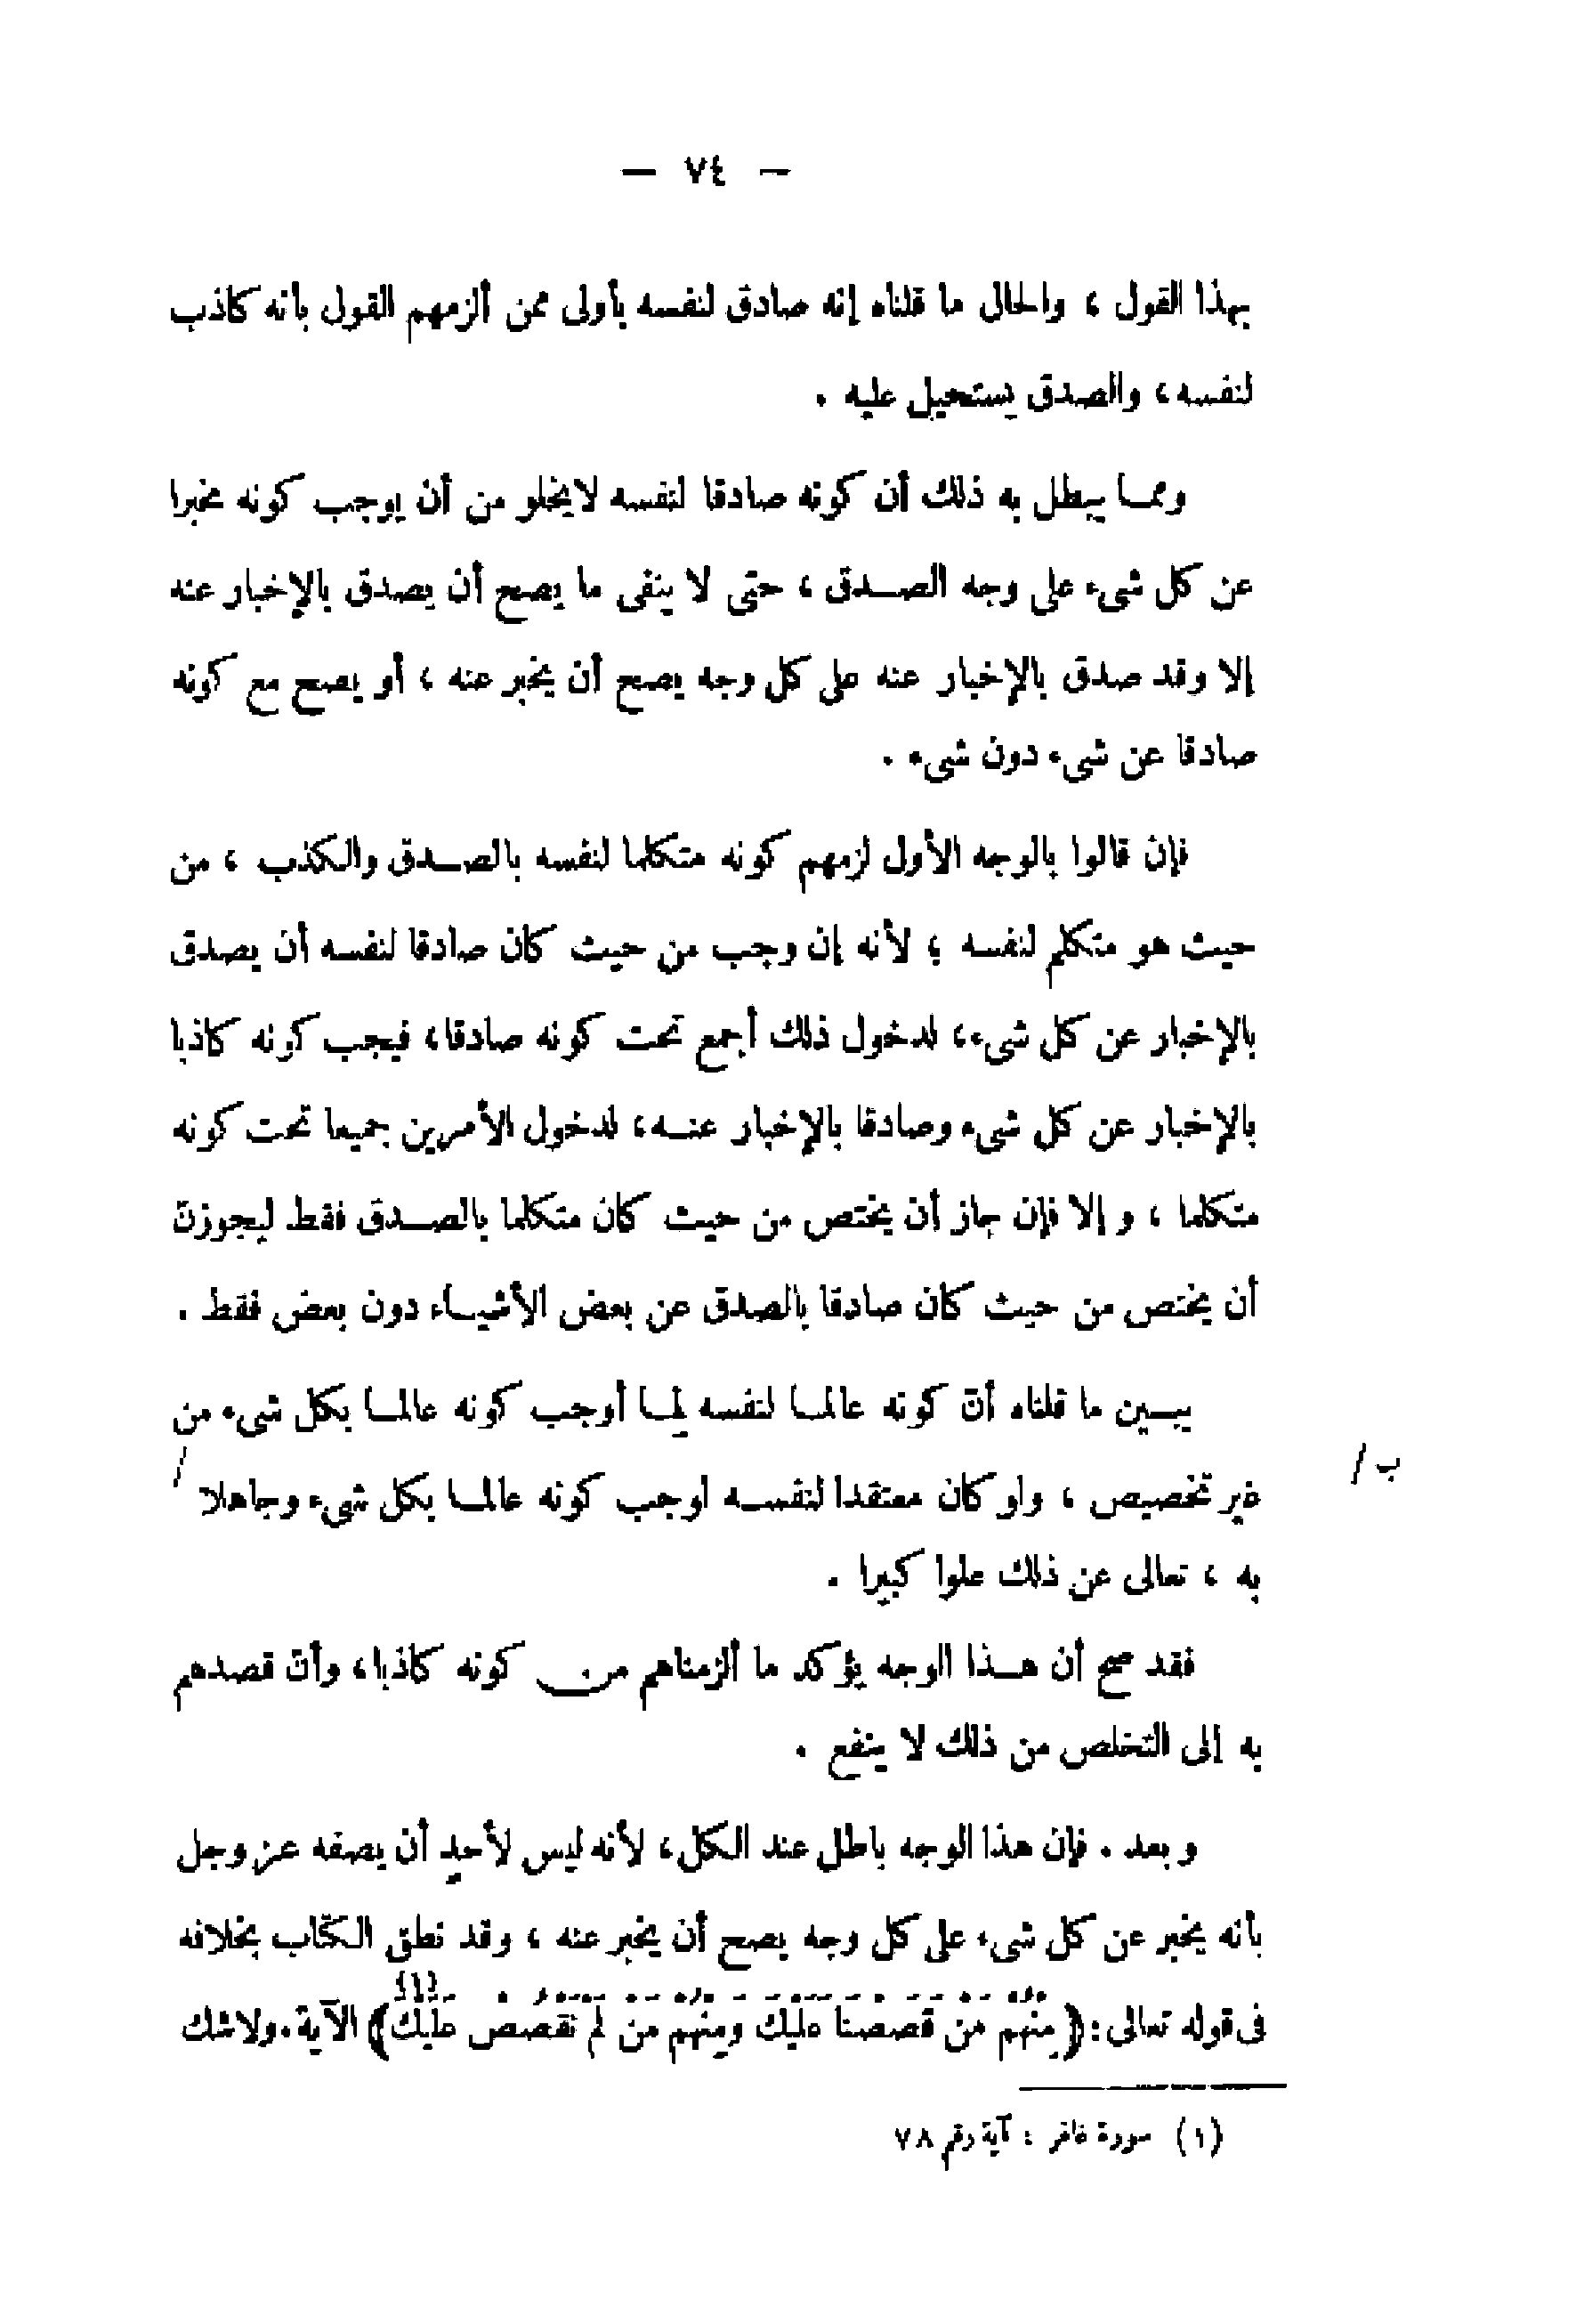 — ٧٤ —
بهذا القول ، والحال ما قلناه إنه صادق لنفسه بأولى ممن ألزمهم القول بأنه كاذب
لنفسه ، والصدق يستحيل عليه .
ومما يبطل به ذلك أن كونه صادقا لنفسه لا يخلو من أن يوجب كونه مخبرا
عن كل شىء على وجه الصدق ، حتى لا ينفى ما يصح أن يصدق بالإخبار عنه
إلا وقد صدق بالإخبار عنه على كل وجه يصح أن يخبر عنه ، أو يصح مع كونه
صادقا عن شىء دون شىء .
فإن قالوا بالوجه الأول لزمهم كونه متكلما لنفسه بالصدق والكذب ، من
حيث هو متكلم لنفسه ؛ لأنه إن وجب من حيث كان صادقا لنفسه أن يصدق
بالإخبار عن كل شىء ، لدخول ذلك أجمع تحت كونه صادقا ، فيجب كونه كاذبا
بالإخبار عن كل شىء وصادقا بالإخبار عنه ، لدخول الأمرين جميعا تحت كونه
متكلما ، و إلا فإن جاز أن يختص من حيث كان متكلما بالصدق فقط ليجوزنّ
أن يختص من حيث كان صادقا بالصدق عن بعض الأشياء دون بعض فقط .
يبين ما قلناه أنّ كونه عالما لنفسه لِما أوجب كونه عالما بكل شىء من
غير تخصيص ، ولو كان معتقدا لنفسه لوجب كونه عالما بكل شىء وجاهلا /
ب /
به ، تعالى عن ذلك علوا كبيرا .
فقد صح أن هذا الوجه يؤكد ما ألزمناهم من كونه كاذبا ، وأنّ قصدهم
به إلى التخلص من ذلك لا ينفع .
و بعد . فإن هذا الوجه باطل عند الكل ، لأنه ليس لأحدٍ أن يصفه عز وجل
بأنه يخبر عن كل شىء على كل وجه يصح أن يخبر عنه ، وقد نطق الكتاب بخلافه
فى قوله تعالى : ﴿مِنْهُم مَّن قَصَصْنَا عَلَيْكَ وَمِنْهُم مَّن لَّمْ نَقْصُصْ عَلَيْكَ﴾ (١) الآية . ولا شك
(١) سورة غافر : آية رقم ٧٨